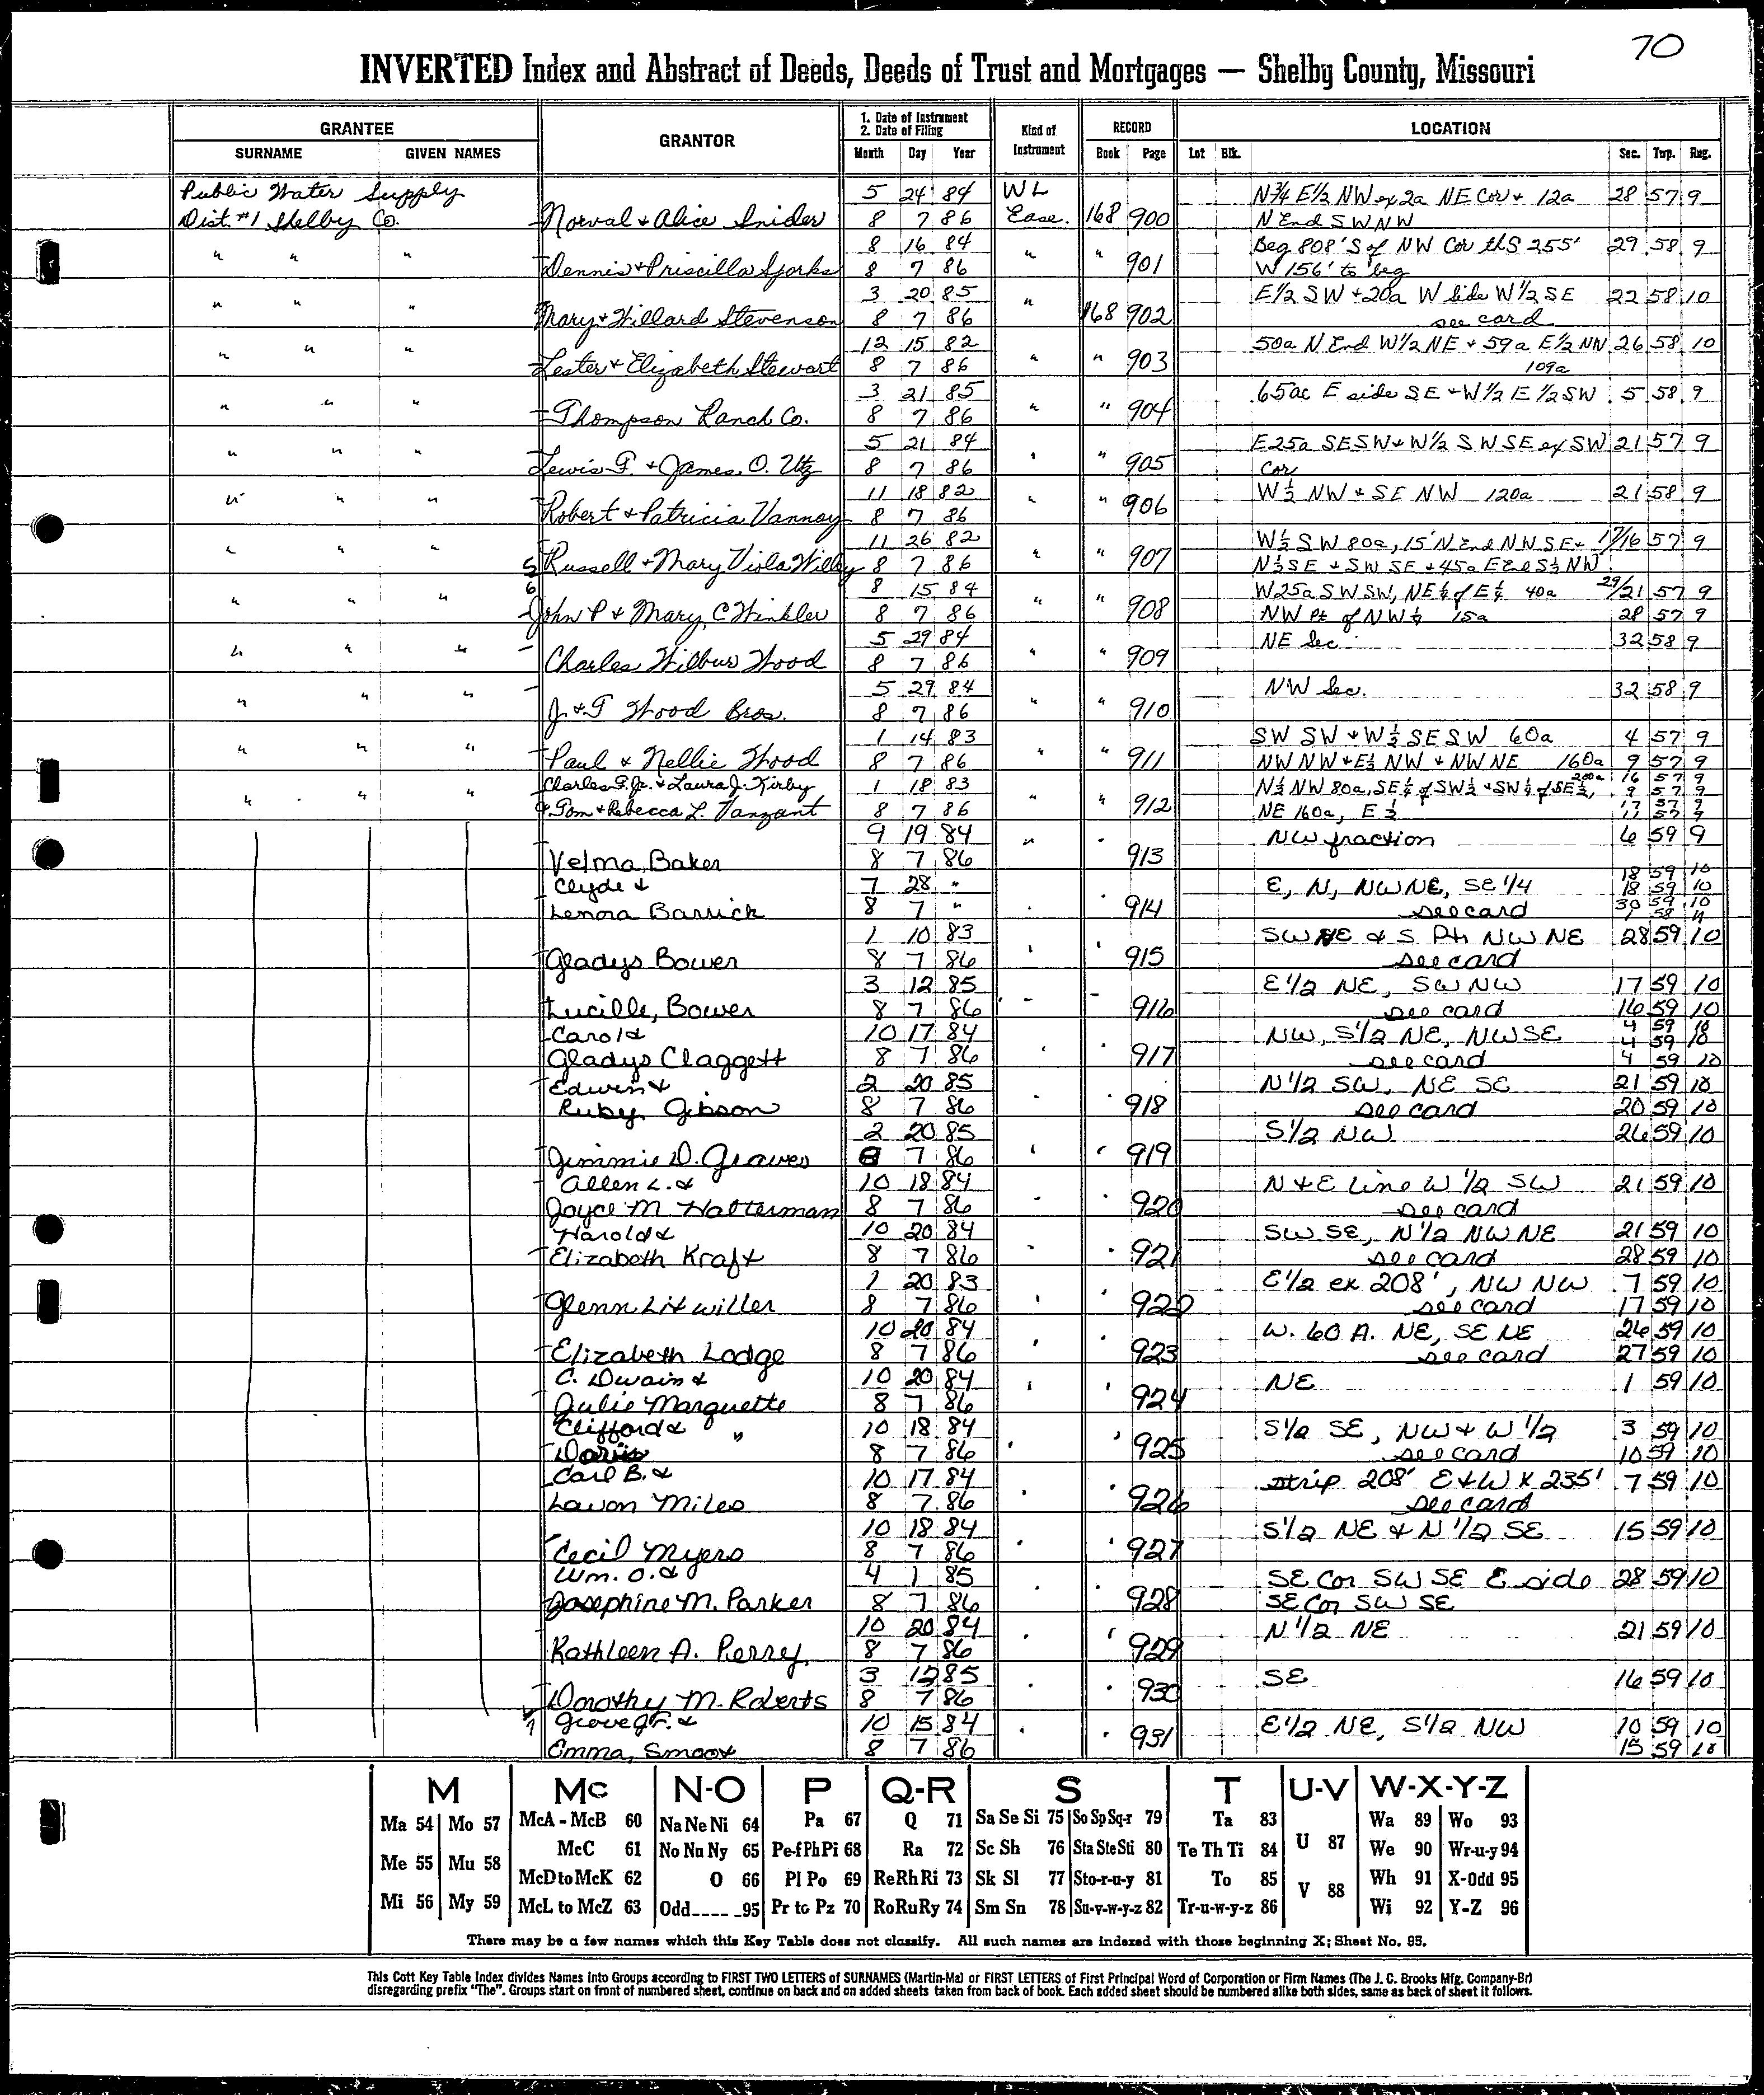 70
INVERTED Index and Abstract of Deeds, Deeds of Trust and Mortgages — Shelby County, Missouri
GRANTEE GRANTOR 1. Date of Instrument 2. Date of Filing Kind of Instrument RECORD LOCATION
SURNAME GIVEN NAMES Month Day Year Book Page Lot Blk. Sec. Twp. Rng.
Public Water Supply 5 24 84 WL N3/4 E1/2 NW ex 2a NE Cor + 12a 28 57 9
Dist. #1 Shelby Co. Norval + Alice Snider 8 7 86 Ease. 168 900 N End SWNW
8 16 84 Beg 808' S of NW Cor th S 255' 29 58 9
" " " Dennis + Priscilla Sparks 8 7 86 " " 901 W 156' to beg
3 20 85 E1/2 SW + 20a W Side W1/2 SE 22 58 10
" " " Mary + Willard Stevenson 8 7 86 " 168 902 see card
12 15 82 50a N End W1/2 NE + 59a E1/2 NW 26 58 10
" " " Lester + Elizabeth Stewart 8 7 86 " " 903 109a
3 21 85 65ac E side SE + W1/2 E1/2 SW 5 58 9
" " " Thompson Ranch Co. 8 7 86 " " 904
5 21 84 E25a SESW + W1/2 SWSE ex SW 21 57 9
" " " Lewis F. + James O. Utz 8 7 86 " " 905 Cor
11 18 82 W1/2 NW + SE NW 120a 21 58 9
" " " Robert + Patricia Vannoy 8 7 86 " " 906
11 26 82 W1/2 SW 80a, 15' N End NWSE + 17/16 57 9
" " " Russell + Mary Viola Willey 8 7 86 " " 907 N1/2 SE + SW SE + 45a E End S1/2 NW
8 15 84 W25a SWSW, NE1/4 of E1/2 40a 29/21 57 9
" " " John P + Mary C Winkler 8 7 86 " " 908 NW Pt of NW1/4 15a 28 57 9
5 29 84 NE Sec 32 58 9
" " " Charles Wilbur Wood 8 7 86 " " 909
5 29 84 NW Sec. 32 58 9
" " " J. + G Wood Bros. 8 7 86 " " 910
1 14 83 SW SW + W1/2 SESW 60a 4 57 9
" " " Paul & Nellie Wood 8 7 86 " " 911 NWNW + E1/2 NW + NWNE 160a 9 57 9
Charles F. Jr. + Laura J. Kirby 1 18 83 N1/2 NW 80a, SE1/4 of SW1/4 + SW1/4 of SE1/4, 200a 16 57 9
" " " & Tom + Rebecca L. Vanzant 8 7 86 " " 912 NE 160a, E1/2 9 57 9
17 57 9
9 19 84 " NW fraction 6 59 9
Velma Baker 8 7 86 913
Clyde & 7 28 " E, N, NWNE, SE 1/4 18 59 10
18 59 10
Lenora Barrick 8 7 " 914 see card 30 59 10
1 10 83 SWNE & S Pt NWNE 28 59 10
Gladys Bower 8 7 86 915 see card
3 12 85 E1/2 NE, SWNW 17 59 10
Lucille Bower 8 7 86 916 see card 16 59 10
Carol & 10 17 84 NW, S1/2 NE, NWSE 4 59 10
4 59 10
Gladys Claggett 8 7 86 917 see card 4 59 10
Edwin & 2 20 85 N1/2 SW, NE SE 21 59 10
Ruby Gibson 8 7 86 918 see card 20 59 10
2 20 85 S1/2 NW 26 59 10
Jimmie D. Graves 8 7 86 919
Allen L. & 10 18 84 N + E Line W 1/2 SW 21 59 10
Joyce M Hatterman 8 7 86 920 see card
Harold & 10 20 84 SWSE, N1/2 NWNE 21 59 10
Elizabeth Kraft 8 7 86 921 see card 28 59 10
1 20 83 E1/2 ex 208', NW NW 7 59 10
Glenn Litwiller 8 7 86 922 see card 17 59 10
10 20 84 W. 60 A. NE, SE NE 26 59 10
Elizabeth Lodge 8 7 86 923 see card 27 59 10
C. Dwain & 10 20 84 NE 1 59 10
Julie Marquette 8 7 86 924
Clifford & " 10 18 84 S1/2 SE, NW + W1/2 3 59 10
Doris 8 7 86 925 see card 10 59 10
Carl B. & 10 17 84 strip 208' E + W x 235' 7 59 10
Lavon Miles 8 7 86 926 see card
10 18 84 S1/2 NE & N1/2 SE 15 59 10
Cecil Myers 8 7 86 927
Wm. O. & 4 1 85 SE Cor SW SE E side 28 59 10
Josephine M. Parker 8 7 86 928 SE Cor SW SE
10 20 84 N1/2 NE 21 59 10
Kathleen A. Perrey 8 7 86 929
3 12 85 SE 16 59 10
Dorothy M. Roberts 8 7 86 930
Grove Jr. & 10 15 84 E1/2 NE, S1/2 NW 10 59 10
Emma Smoot 8 7 86 931 15 59 10
M Mc N-O P Q-R S T U-V W-X-Y-Z
Ma 54 Mo 57 McA - McB 60 Na Ne Ni 64 Pa 67 Q 71 Sa Se Si 75 So Sp Sq-r 79 Ta 83 U 87 Wa 89 Wo 93
Me 55 Mu 58 McC 61 No Nu Ny 65 Pe-f Ph Pi 68 Ra 72 Sc Sh 76 Sta Ste Sti 80 Te Th Ti 84 We 90 Wr-u-y 94
McD to McK 62 O 66 Pl Po 69 Re Rh Ri 73 Sk Sl 77 Sto-r-u-y 81 To 85 V 88 Wh 91 X-Odd 95
Mi 56 My 59 McL to McZ 63 Odd---- -95 Pr to Pz 70 Ro Ru Ry 74 Sm Sn 78 Su-v-w-y-z 82 Tr-u-w-y-z 86 Wi 92 Y-Z 96
There may be a few names which this Key Table does not classify. All such names are indexed with those beginning X; Sheet No. 95.
This Cott Key Table Index divides Names into Groups according to FIRST TWO LETTERS of SURNAMES (Martin-Ma) or FIRST LETTERS of First Principal Word of Corporation or Firm Names (The J. C. Brooks Mfg. Company-Br)
disregarding prefix "The". Groups start on front of numbered sheet, continue on back and on added sheets taken from back of book. Each added sheet should be numbered alike both sides, same as back of sheet it follows.